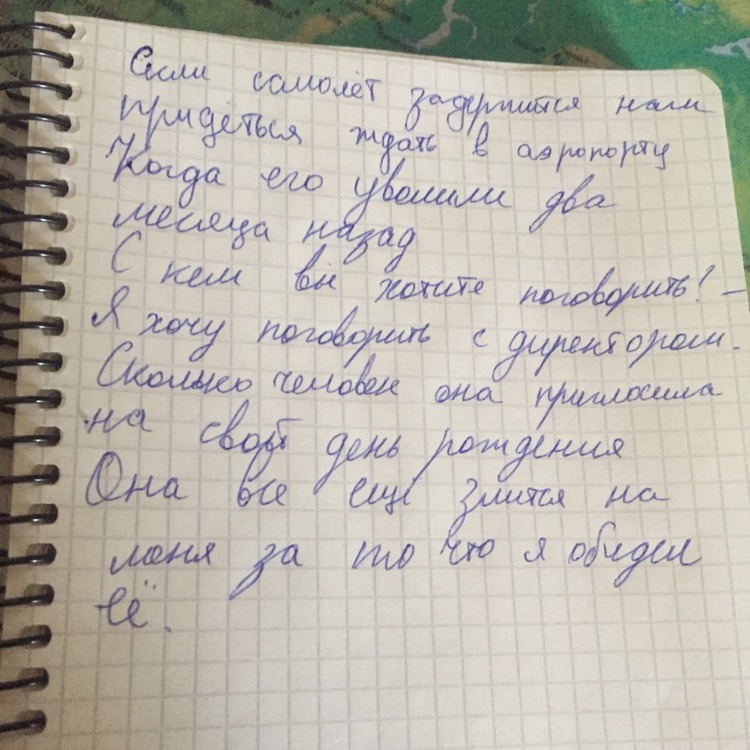 Если самолёт задержится нам
придёться ждать в аэропорту
Когда его уволили два
месяца назад
С кем вы хотите поговорить! –
Я хочу поговорить с директором.
Сколько человек она пригласила
на свой день рождения
Она все ещё злится на
меня за то что я обидел
её.